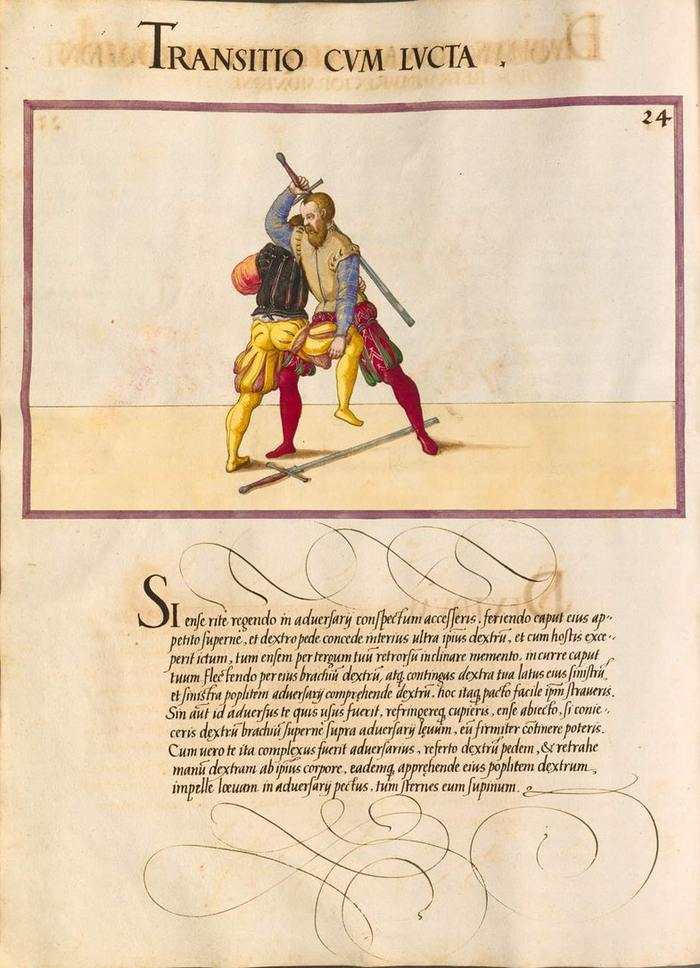 TRANSITIO CVM LVCTA .
24
SI ense rite regendo in adversarÿ conspectum accesseris, feriendo caput eius ap-
petito superne, et dextro pede concede interius ultra ipsius dextrũ, et cum hostis exce-
perit ictum, tum ensem per tergum tuũ retrorsũ inclinare memento, incurre caput
tuum flectendo per eius brachiũ dextrũ, atq, contingas dextra tua latus eius sinistrũ,
et sinistra poplitem adversarÿ comprehende dextrũ, hoc itaq, pacto facile ipm̃ straveris.
Sin aũt id adversus te quis usus fuerit, refringereq, cupieris, ense abiecto, si conie-
ceris dextrũ brachiũ superne supra adversarÿ levum, eũ firmiter cõtinere poteris.
Cum vero te ita complexus fuerit adversarius, referto dextrũ pedem, & retrahe
manũ dextram ab ipsius corpore, eademq, apprehende eius poplitem dextrum,
impelle loevam in adversarÿ pectus, tum sternes eum supinum.